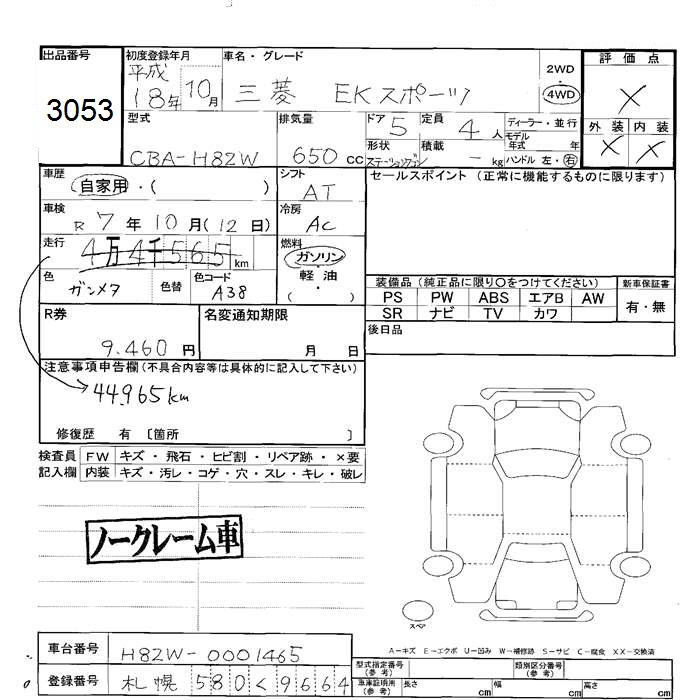 出品番号 初度登録年月 車名・グレード 評価点
3053 平成18年10月 三菱 EKスポーツ 2WD・4WD ×
型式 排気量 ドア 5 定員 4人 ディーラー・並行 外装 内装
CBA-H82W 650cc 形状 ステーションワゴン 積載 -kg モデル年式 年 ハンドル 左・右 × ×
車歴 自家用・( ) シフト AT セールスポイント(正常に機能するものに限ります)
車検 R7年10月(12日) 冷房 AC
走行 4万4千565km 燃料 ガソリン 軽油 ・( )
色 ガンメタ 色替 色コード A38
装備品(純正品に限り○をつけてください) 新車保証書
PS PW ABS エアB AW 有・無
SR ナビ TV カワ
R券 9.460円 名変通知期限 月 日 後日品
注意事項申告欄(不具合内容等は具体的に記入して下さい)
44,965km
修復歴 有 〔箇所 〕
検査員 FW キズ・飛石・ヒビ割・リペア跡・×要
記入欄 内装 キズ・汚レ・コゲ・穴・スレ・キレ・破レ
ノークレーム車
スペア
A-キズ E-エクボ U-凹み W-補修跡 S-サビ C-腐食 XX-交換済
車台番号 H82W-0001465 型式指定番号(参考) 類別区分番号(参考)
登録番号 札幌 580く9664 車庫証明用(参考) 長さ cm 幅 cm 高さ cm